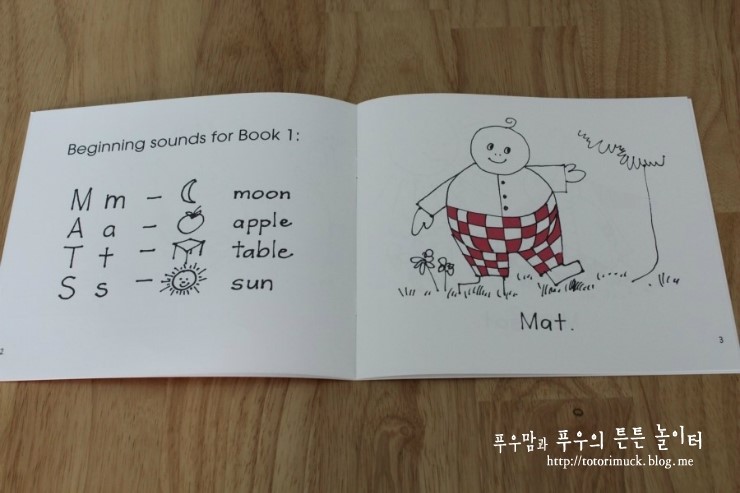 Beginning sounds for Book 1:
M m – moon
A a – apple
T t – table
S s – sun
2
Mat.
3
푸우맘과 푸우의 튼튼 놀이터
http://totorimuck.blog.me